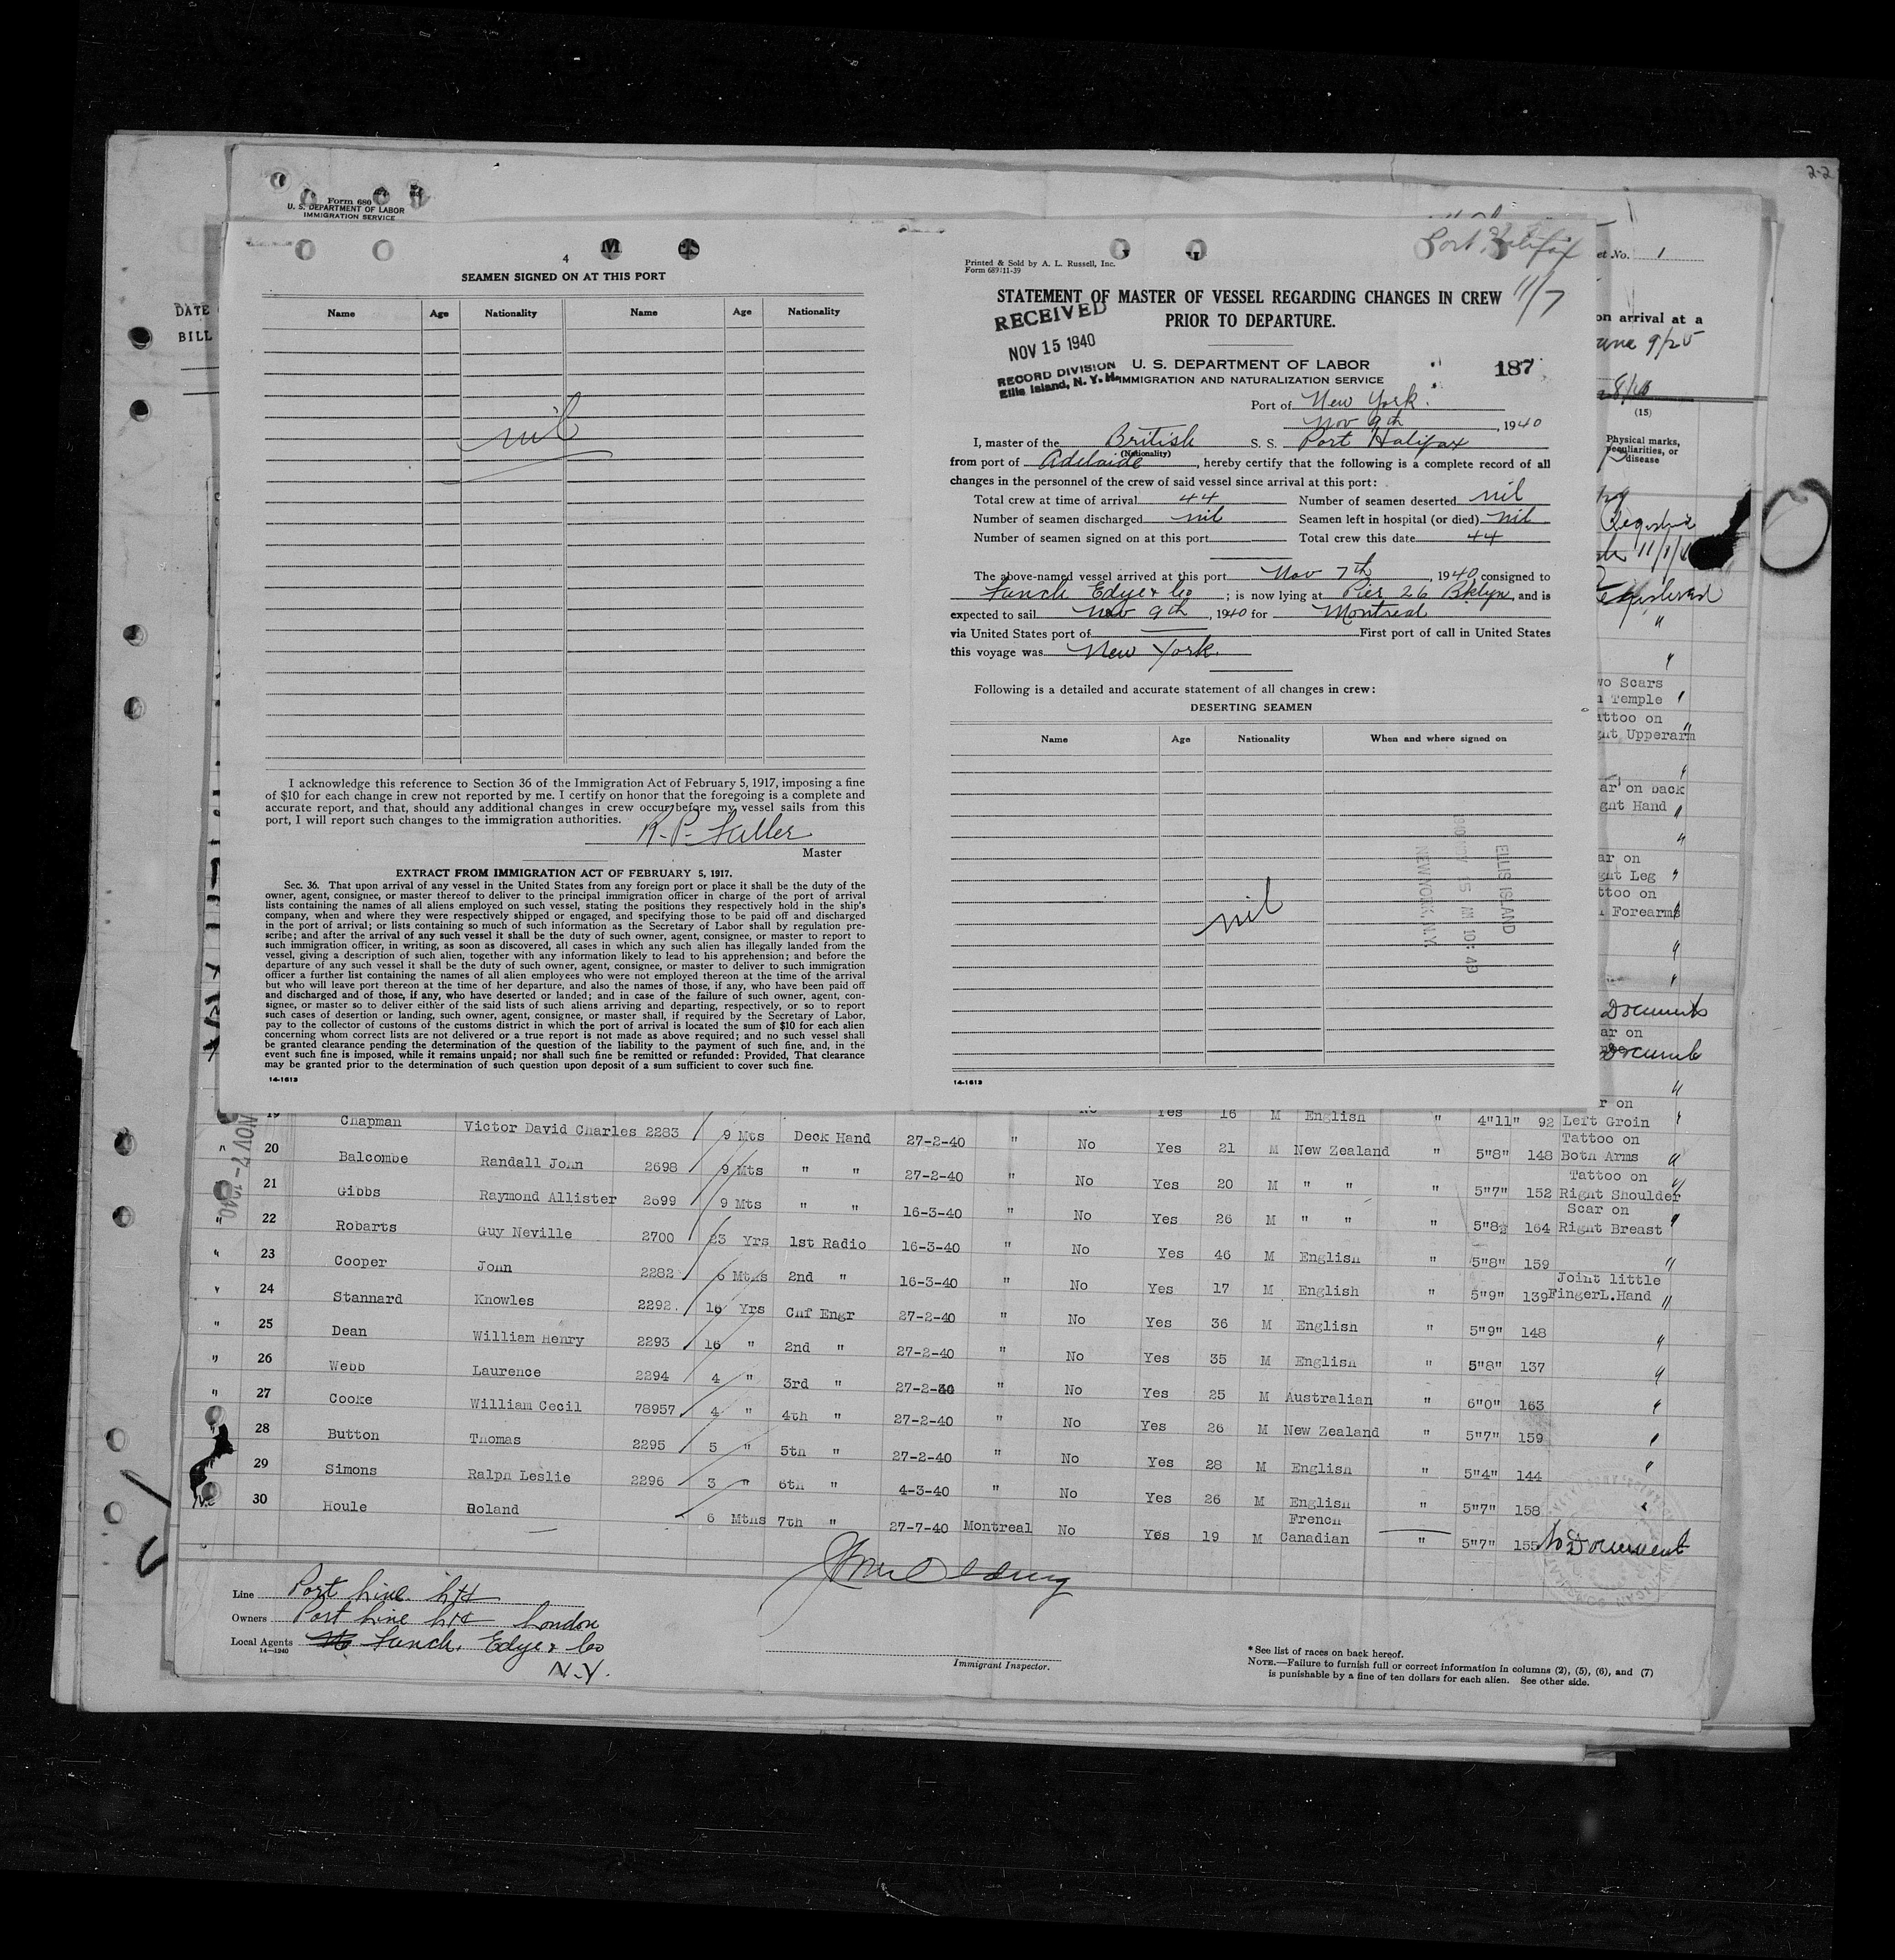 2-2
Form 680
U. S. DEPARTMENT OF LABOR
IMMIGRATION SERVICE
No. 1
DATE
BILL
on arrival at a
(15)
Physical marks,
peculiarities, or
disease
4
SEAMEN SIGNED ON AT THIS PORT
Name Age Nationality Name Age Nationality
nil
I acknowledge this reference to Section 36 of the Immigration Act of February 5, 1917, imposing a fine
of $10 for each change in crew not reported by me. I certify on honor that the foregoing is a complete and
accurate report, and that, should any additional changes in crew occur before my vessel sails from this
port, I will report such changes to the immigration authorities.
Master
EXTRACT FROM IMMIGRATION ACT OF FEBRUARY 5, 1917.
Sec. 36. That upon arrival of any vessel in the United States from any foreign port or place it shall be the duty of the
owner, agent, consignee, or master thereof to deliver to the principal immigration officer in charge of the port of arrival
lists containing the names of all aliens employed on such vessel, stating the positions they respectively hold in the ship's
company, when and where they were respectively shipped or engaged, and specifying those to be paid off and discharged
in the port of arrival; or lists containing so much of such information as the Secretary of Labor shall by regulation pre-
scribe; and after the arrival of any such vessel it shall be the duty of such owner, agent, consignee, or master to report to
such immigration officer, in writing, as soon as discovered, all cases in which any such alien has illegally landed from the
vessel, giving a description of such alien, together with any information likely to lead to his apprehension; and before the
departure of any such vessel it shall be the duty of such owner, agent, consignee, or master to deliver to such immigration
officer a further list containing the names of all alien employees who were not employed thereon at the time of the arrival
but who will leave port thereon at the time of her departure, and also the names of those, if any, who have been paid off
and discharged and of those, if any, who have deserted or landed; and in case of the failure of such owner, agent, con-
signee, or master so to deliver either of the said lists of such aliens arriving and departing, respectively, or so to report
such cases of desertion or landing, such owner, agent, consignee, or master shall, if required by the Secretary of Labor,
pay to the collector of customs of the customs district in which the port of arrival is located the sum of $10 for each alien
concerning whom correct lists are not delivered or a true report is not made as above required; and no such vessel shall
be granted clearance pending the determination of the question of the liability to the payment of such fine, and, in the
event such fine is imposed, while it remains unpaid; nor shall such fine be remitted or refunded: Provided, That clearance
may be granted prior to the determination of such question upon deposit of a sum sufficient to cover such fine.
14-1613
Port Halifax
11/7
Printed & Sold by A. L. Russell, Inc.
Form 689:11-39
STATEMENT OF MASTER OF VESSEL REGARDING CHANGES IN CREW
PRIOR TO DEPARTURE.
RECEIVED
NOV 15 1940
RECORD DIVISION
Ellis Island, N. Y. H.
U. S. DEPARTMENT OF LABOR
IMMIGRATION AND NATURALIZATION SERVICE
187
Port of New York.
Nov 9th, 1940
I, master of the British S. S. Port Halifax
(Nationality)
from port of Adelaide, hereby certify that the following is a complete record of all
changes in the personnel of the crew of said vessel since arrival at this port:
Total crew at time of arrival 44 Number of seamen deserted nil
Number of seamen discharged nil Seamen left in hospital (or died) nil
Number of seamen signed on at this port Total crew this date 44
The above-named vessel arrived at this port Nov 7th, 1940 consigned to
Funch Edye & Co; is now lying at Pier 26 Bklyn, and is
expected to sail Nov 9th, 1940 for Montreal
via United States port of First port of call in United States
this voyage was New York.
Following is a detailed and accurate statement of all changes in crew:
DESERTING SEAMEN
Name Age Nationality When and where signed on
nil
ELLIS ISLAND
NEW YORK, N.Y.
14-1613
Two Scars
Temple
Tattoo on
Upperarm
on back
Hand
on
Leg
Tattoo on
Forearms
Documents
on
NOV 7-1940
19 Chapman Victor David Charles 2283 9 Mts Deck Hand 27-2-40 " No Yes 16 M English " 4"11" 92 Left Groin
20 Balcombe Randall John 2698 9 Mts " " 27-2-40 " No Yes 21 M New Zealand " 5"8" 148 Tattoo on Both Arms "
21 Gibbs Raymond Allister 2699 9 Mts " " 16-3-40 " No Yes 20 M " " " 5"7" 152 Tattoo on Right Shoulder "
22 Robarts Guy Neville 2700 23 Yrs 1st Radio 16-3-40 " No Yes 26 M " " " 5"8½ 164 Scar on Right Breast "
23 Cooper John 2282 6 Mths 2nd " 16-3-40 " No Yes 46 M English " 5"8" 159 "
24 Stannard Knowles 2292 16 Yrs Chf Engr 27-2-40 " No Yes 17 M English " 5"9" 139 Joint little FingerL.Hand "
25 Dean William Henry 2293 16 " 2nd " 27-2-40 " No Yes 36 M English " 5"9" 148 "
26 Webb Laurence 2294 4 " 3rd " 27-2-40 " No Yes 35 M English " 5"8" 137 "
27 Cooke William Cecil 78957 4 " 4th " 27-2-40 " No Yes 25 M Australian " 6"0" 163 "
28 Button Thomas 2295 5 " 5th " 27-2-40 " No Yes 26 M New Zealand " 5"7" 159
29 Simons Ralph Leslie 2296 3 " 6th " 4-3-40 " No Yes 28 M English " 5"4" 144
30 Houle Roland 6 Mths 7th " 27-7-40 Montreal No Yes 26 M English " 5"7" 158
Yes 19 M French Canadian " 5"7" 155 No Document
Line Port Line Ltd
Owners Port Line Ltd London
Local Agents Funch, Edye & Co
14-1240
N.Y.
Immigrant Inspector.
*See list of races on back hereof.
NOTE.—Failure to furnish full or correct information in columns (2), (5), (6), and (7)
is punishable by a fine of ten dollars for each alien. See other side.